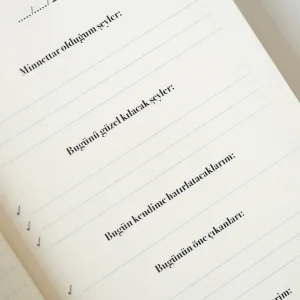 ..../..../
Minnettar olduğum şeyler:
Bugünü güzel kılacak şeyler:
Bugün kendime hatırlatacaklarım:
Bugünün öne çıkanları: